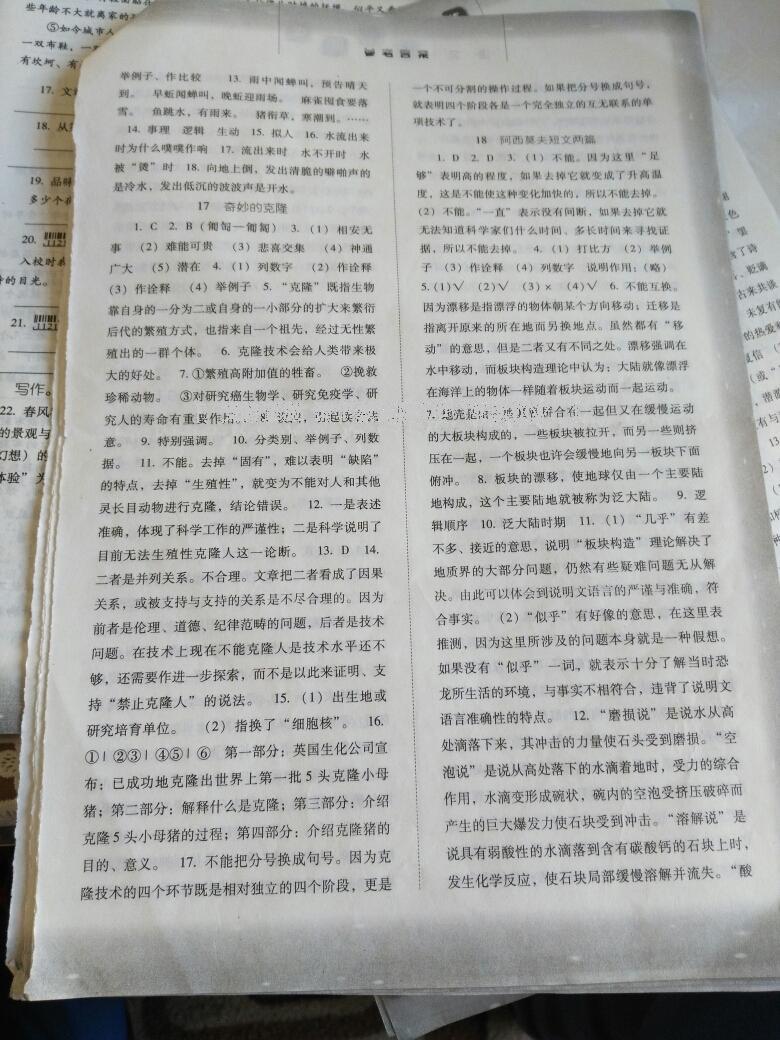 参考答案
举例子、作比较　13. 雨中闻蝉叫，预告晴天
到。　早蚯闻蝉叫，晚蚯迎雨场。　麻雀囤食要落
雪。　鱼跳水，有雨来。　猪衔草，寒潮到。……
14. 事理　逻辑　生动　15. 拟人　16. 水流出来
时为什么噗噗作响　17. 流出来时　水不开时　水
被“烫”时　18. 向地上倒，发出清脆的噼啪声的
是冷水，发出低沉的波波声是开水。
17　奇妙的克隆
1. C　2. B（匍匐—匍匐）　3. （1）相安无
事　（2）难能可贵　（3）悲喜交集　（4）神通
广大　（5）潜在　4. （1）列数字　（2）作诠释
（3）作诠释　（4）举例子　5. “克隆”既指生物
靠自身的一分为二或自身的一小部分的扩大来繁衍
后代的繁殖方式，也指来自一个祖先，经过无性繁
殖出的一群个体。　6. 克隆技术会给人类带来极
大的好处。　7. ①繁殖高附加值的牲畜。　②挽救
珍稀动物。　③对研究癌生物学、研究免疫学、研
究人的寿命有重要作用。　8. 设问，引起读者注
意。　9. 特别强调。　10. 分类别、举例子、列数
据。　11. 不能。去掉“固有”，难以表明“缺陷”
的特点，去掉“生殖性”，就变为不能对人和其他
灵长目动物进行克隆，结论错误。　12. 一是表述
准确，体现了科学工作的严谨性；二是科学说明了
目前无法生殖性克隆人这一论断。　13. D　14.
二者是并列关系。不合理。文章把二者看成了因果
关系，或被支持与支持的关系是不尽合理的。因为
前者是伦理、道德、纪律范畴的问题，后者是技术
问题。在技术上现在不能克隆人是技术水平还不
够，还需要作进一步探索，而不是以此来证明、支
持“禁止克隆人”的说法。　15. （1）出生地或
研究培育单位。　（2）指换了“细胞核”。　16.
①｜②③｜④⑤｜⑥　第一部分：英国生化公司宣
布：已成功地克隆出世界上第一批 5 头克隆小母
猪；第二部分：解释什么是克隆；第三部分：介绍
克隆 5 头小母猪的过程；第四部分：介绍克隆猪的
目的、意义。　17. 不能把分号换成句号。因为克
隆技术的四个环节既是相对独立的四个阶段，更是
一个不可分割的操作过程。如果把分号换成句号，
就表明四个阶段各是一个完全独立的互无联系的单
项技术了。
18　阿西莫夫短文两篇
1. D　2. D　3. （1）不能。因为这里“足
够”表明高的程度，如果去掉它就变成了升高温
度，这是不能使这种变化加快的，所以不能去掉。
（2）不能。“一直”表示没有间断，如果去掉它就
无法知道科学家们什么时间、多长时间来寻找证
据，所以不能去掉。　4. （1）打比方　（2）举例
子　（3）作诠释　（4）列数字　说明作用：（略）
5. （1）√　（2）√　（3）×　（4）√　6. 不能互换。
因为漂移是指漂浮的物体朝某个方向移动；迁移是
指离开原来的所在地而另换地点。虽然都有“移
动”的意思，但是二者又有不同之处。漂移强调在
水中移动，而板块构造理论中认为：大陆就像漂浮
在海洋上的物体一样随着板块运动而一起运动。
7. 地壳是由紧密拼合在一起但又在缓慢运动
的大板块构成的，一些板块被拉开，而另一些则挤
压在一起，一个板块也许会缓慢地向另一板块下面
俯冲。　8. 板块的漂移，使地球仅由一个主要陆
地构成，这个主要陆地就被称为泛大陆。　9. 逻
辑顺序　10. 泛大陆时期　11. （1）“几乎”有差
不多、接近的意思，说明“板块构造”理论解决了
地质界的大部分问题，仍然有些疑难问题无从解
决。由此可以体会到说明文语言的严谨与准确，符
合事实。　（2）“似乎”有好像的意思，在这里表
推测，因为这里所涉及的问题本身就是一种假想。
如果没有“似乎”一词，就表示十分了解当时恐
龙所生活的环境，与事实不相符合，违背了说明文
语言准确性的特点。　12. “磨损说”是说水从高
处滴落下来，其冲击的力量使石头受到磨损。“空
泡说”是说从高处落下的水滴着地时，受力的综合
作用，水滴变形成碗状，碗内的空泡受挤压破碎而
产生的巨大爆发力使石块受到冲击。“溶解说”是
说具有弱酸性的水滴落到含有碳酸钙的石块上时，
发生化学反应，使石块局部缓慢溶解并流失。“酸